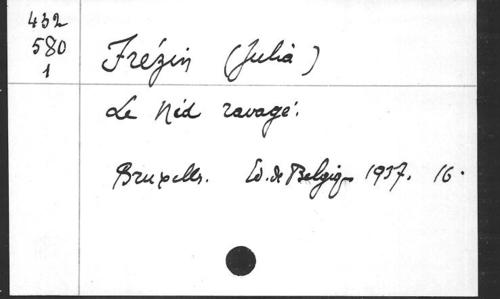 432
580
1
Frézin (Julia)
Le Nid ravagé.
Bruxelles. Ed. de Belgiq 1937. 16.